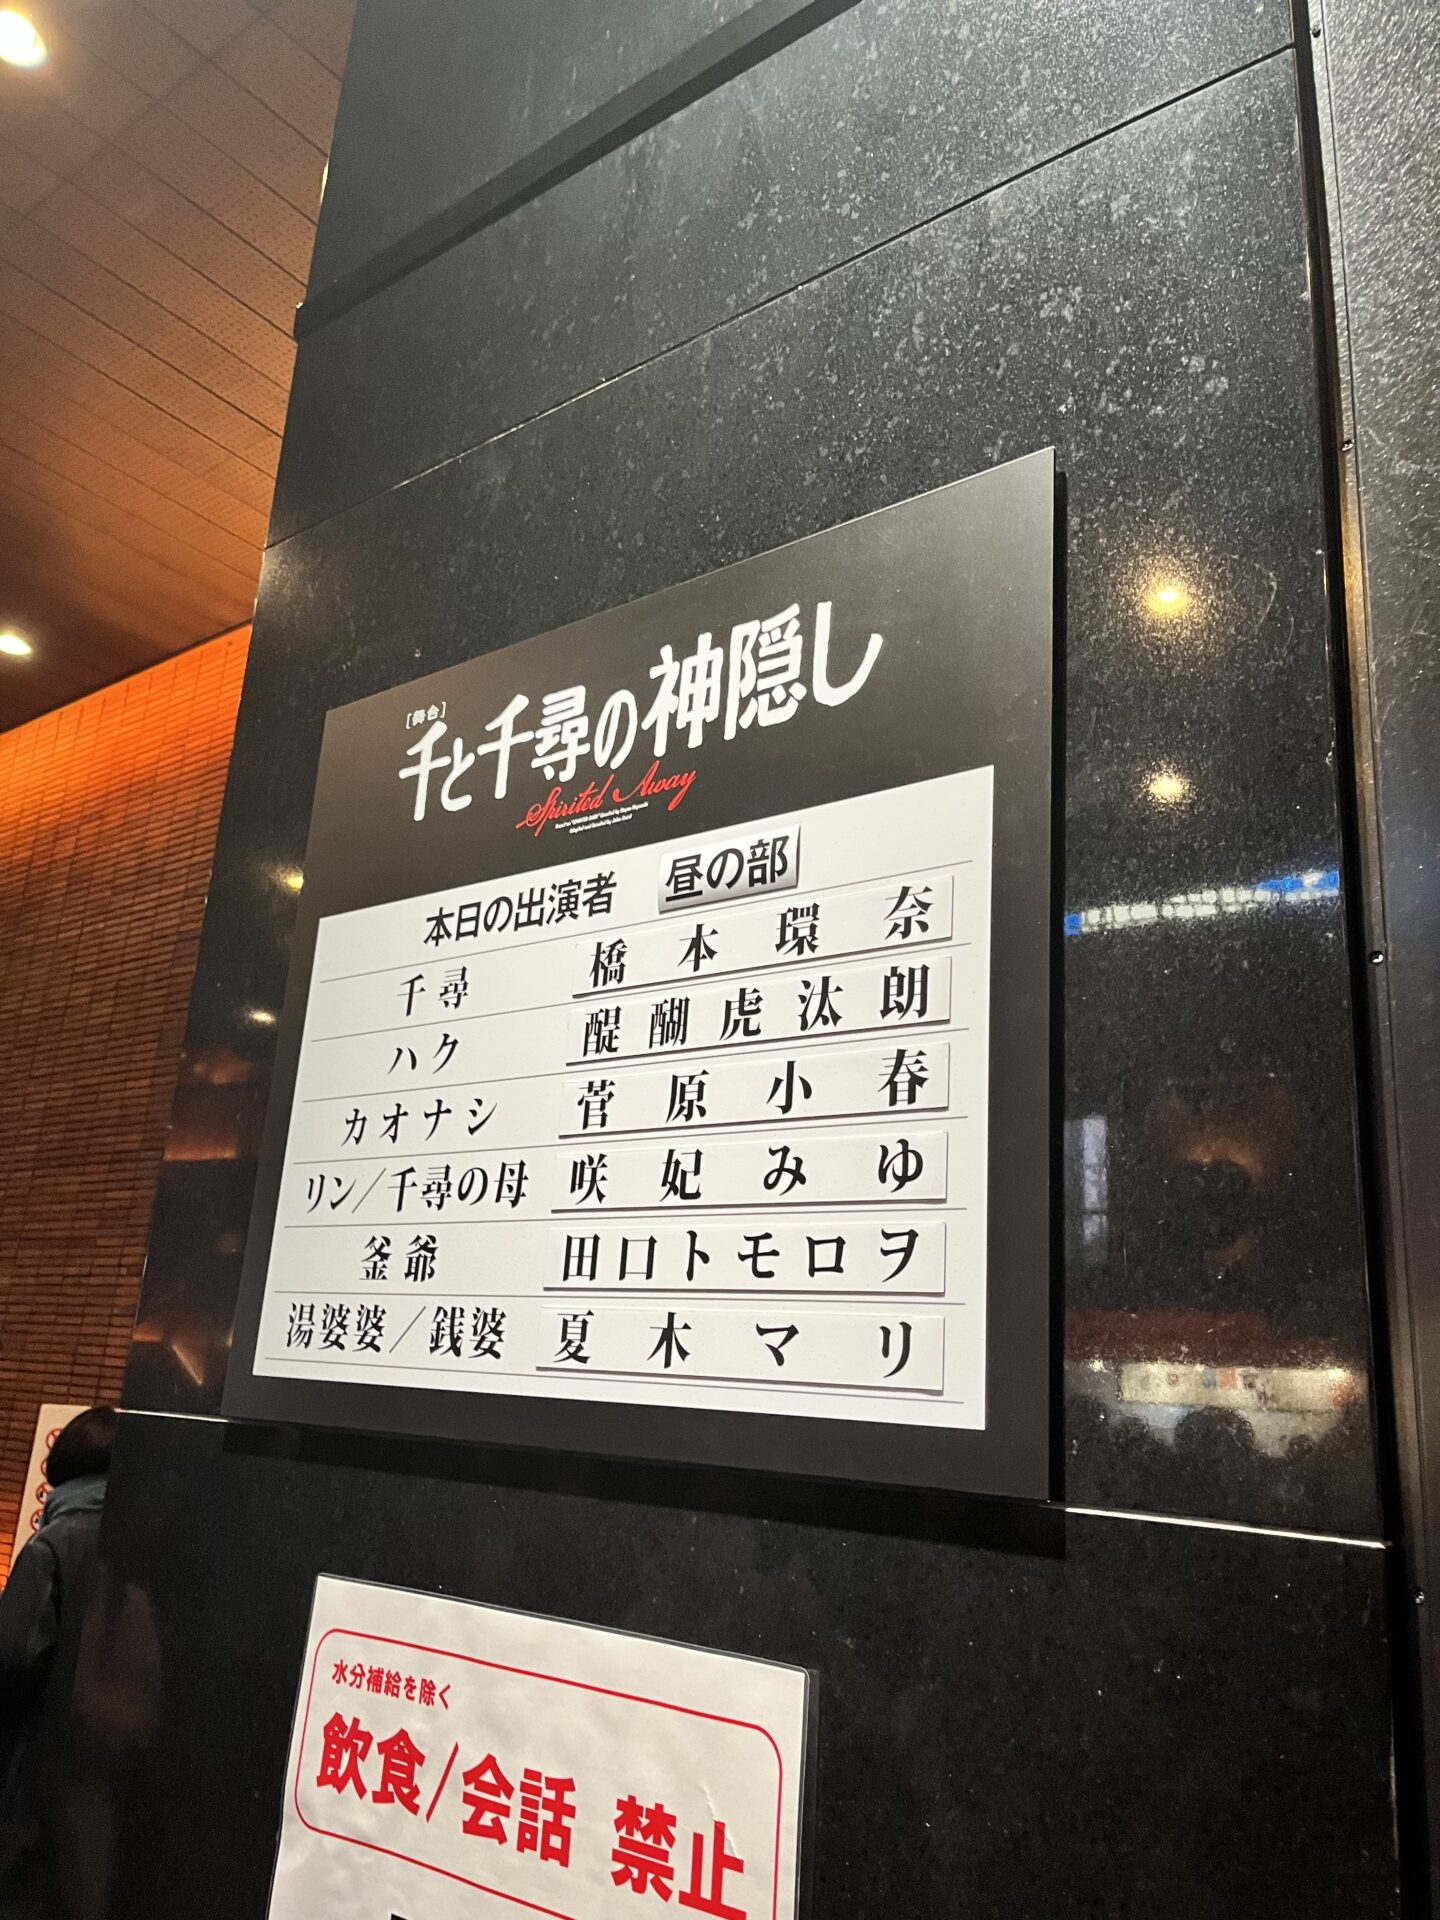 [舞台]
千と千尋の神隠し
Spirited Away
本日の出演者 昼の部
千尋 橋本環奈
ハク 醍醐虎汰朗
カオナシ 菅原小春
リン/千尋の母 咲妃みゆ
釜爺 田口トモロヲ
湯婆婆/銭婆 夏木マリ
水分補給を除く
飲食/会話 禁止